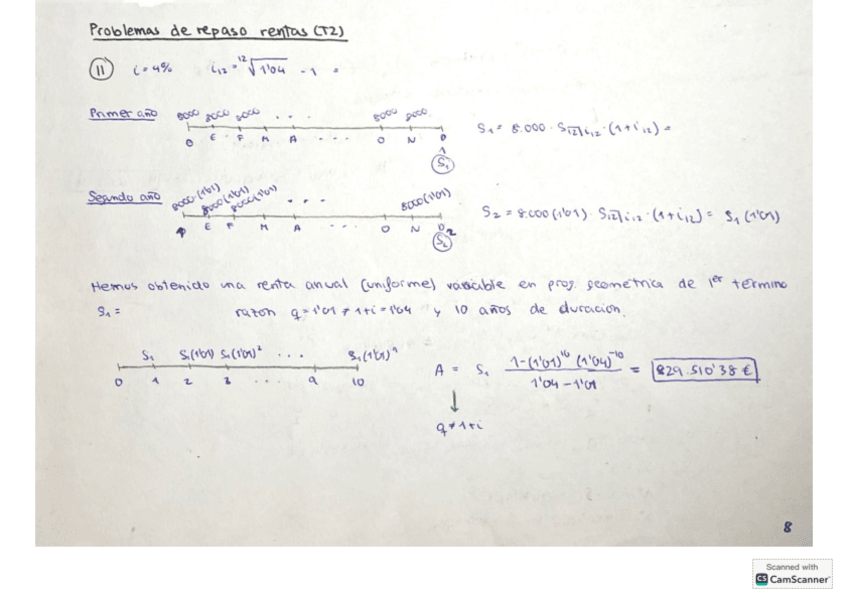 Problemas de repaso rentas (T2)
11 i=4% i12 = ¹²√1'04 - 1 =
Primer año 8000 8000 8000 . . . 8000 8000
0 E F M A . . . O N D
1
S1
S1 = 8.000 · S12┐i12 · (1+i12) =
Segundo año 8000(1'01) 8000(1'01) 8000(1'01) . . . 8000(1'01)
E F M A . . . O N D 2
S2
S2 = 8.000(1'01) · S12┐i12 · (1+i12) = S1 (1'01)
Hemos obtenido una renta anual (uniforme) variable en prog. geométrica de 1er término
S1 = razon q = 1'01 ≠ 1+i = 1'04 y 10 años de duracion.
S1 S1(1'01) S1(1'01)² . . . S1(1'01)⁹
0 1 2 3 . . . 9 10
A = S1 1-(1'01)¹⁰ (1'04)⁻¹⁰ / 1'04 - 1'01 = 829.510'38 €
↓
q ≠ 1+i
8
Scanned with
CS CamScanner